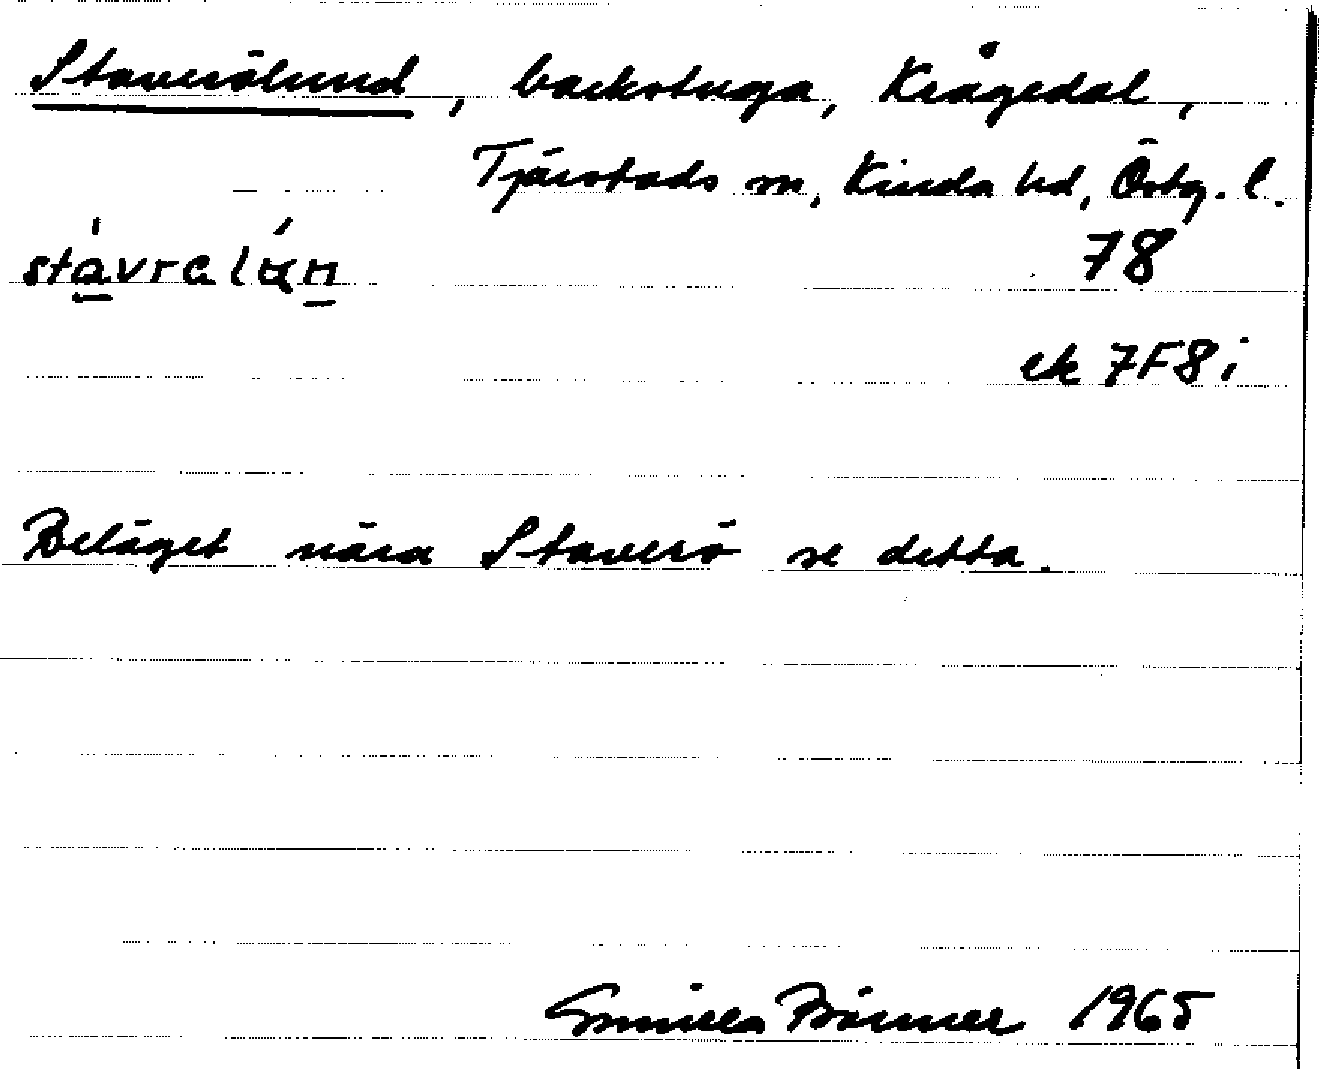 Staverölund, backstuga, Krågedal,
Tjärstads sn, Kinda hd, Östg. l.
78
ek 7F8i
Beläget nära Staverö se detta.
Gunilla 1965